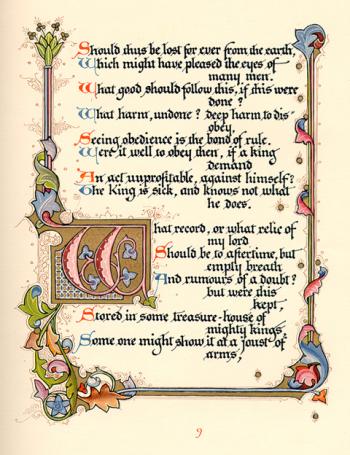 Should thus be lost for ever from the earth,
Which might have pleased the eyes of
many men.
What good should follow this, if this were
done?
What harm, undone? deep harm to dis
obey,
Seeing obedience is the bond of rule.
Were it well to obey then, if a king
demand
An act unprofitable, against himself?
The King is sick, and knows not what
he does.
What record, or what relic of
my lord
Should be to aftertime, but
empty breath
And rumours of a doubt?
but were this
kept,
Stored in some treasure-house of
mighty kings,
Some one might show it at a joust of
arms,
9